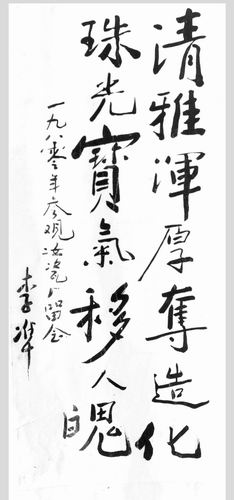 清雅渾厚奪造化
珠光寶氣移人魄
一九八零年参观汝瓷厂留念
李準